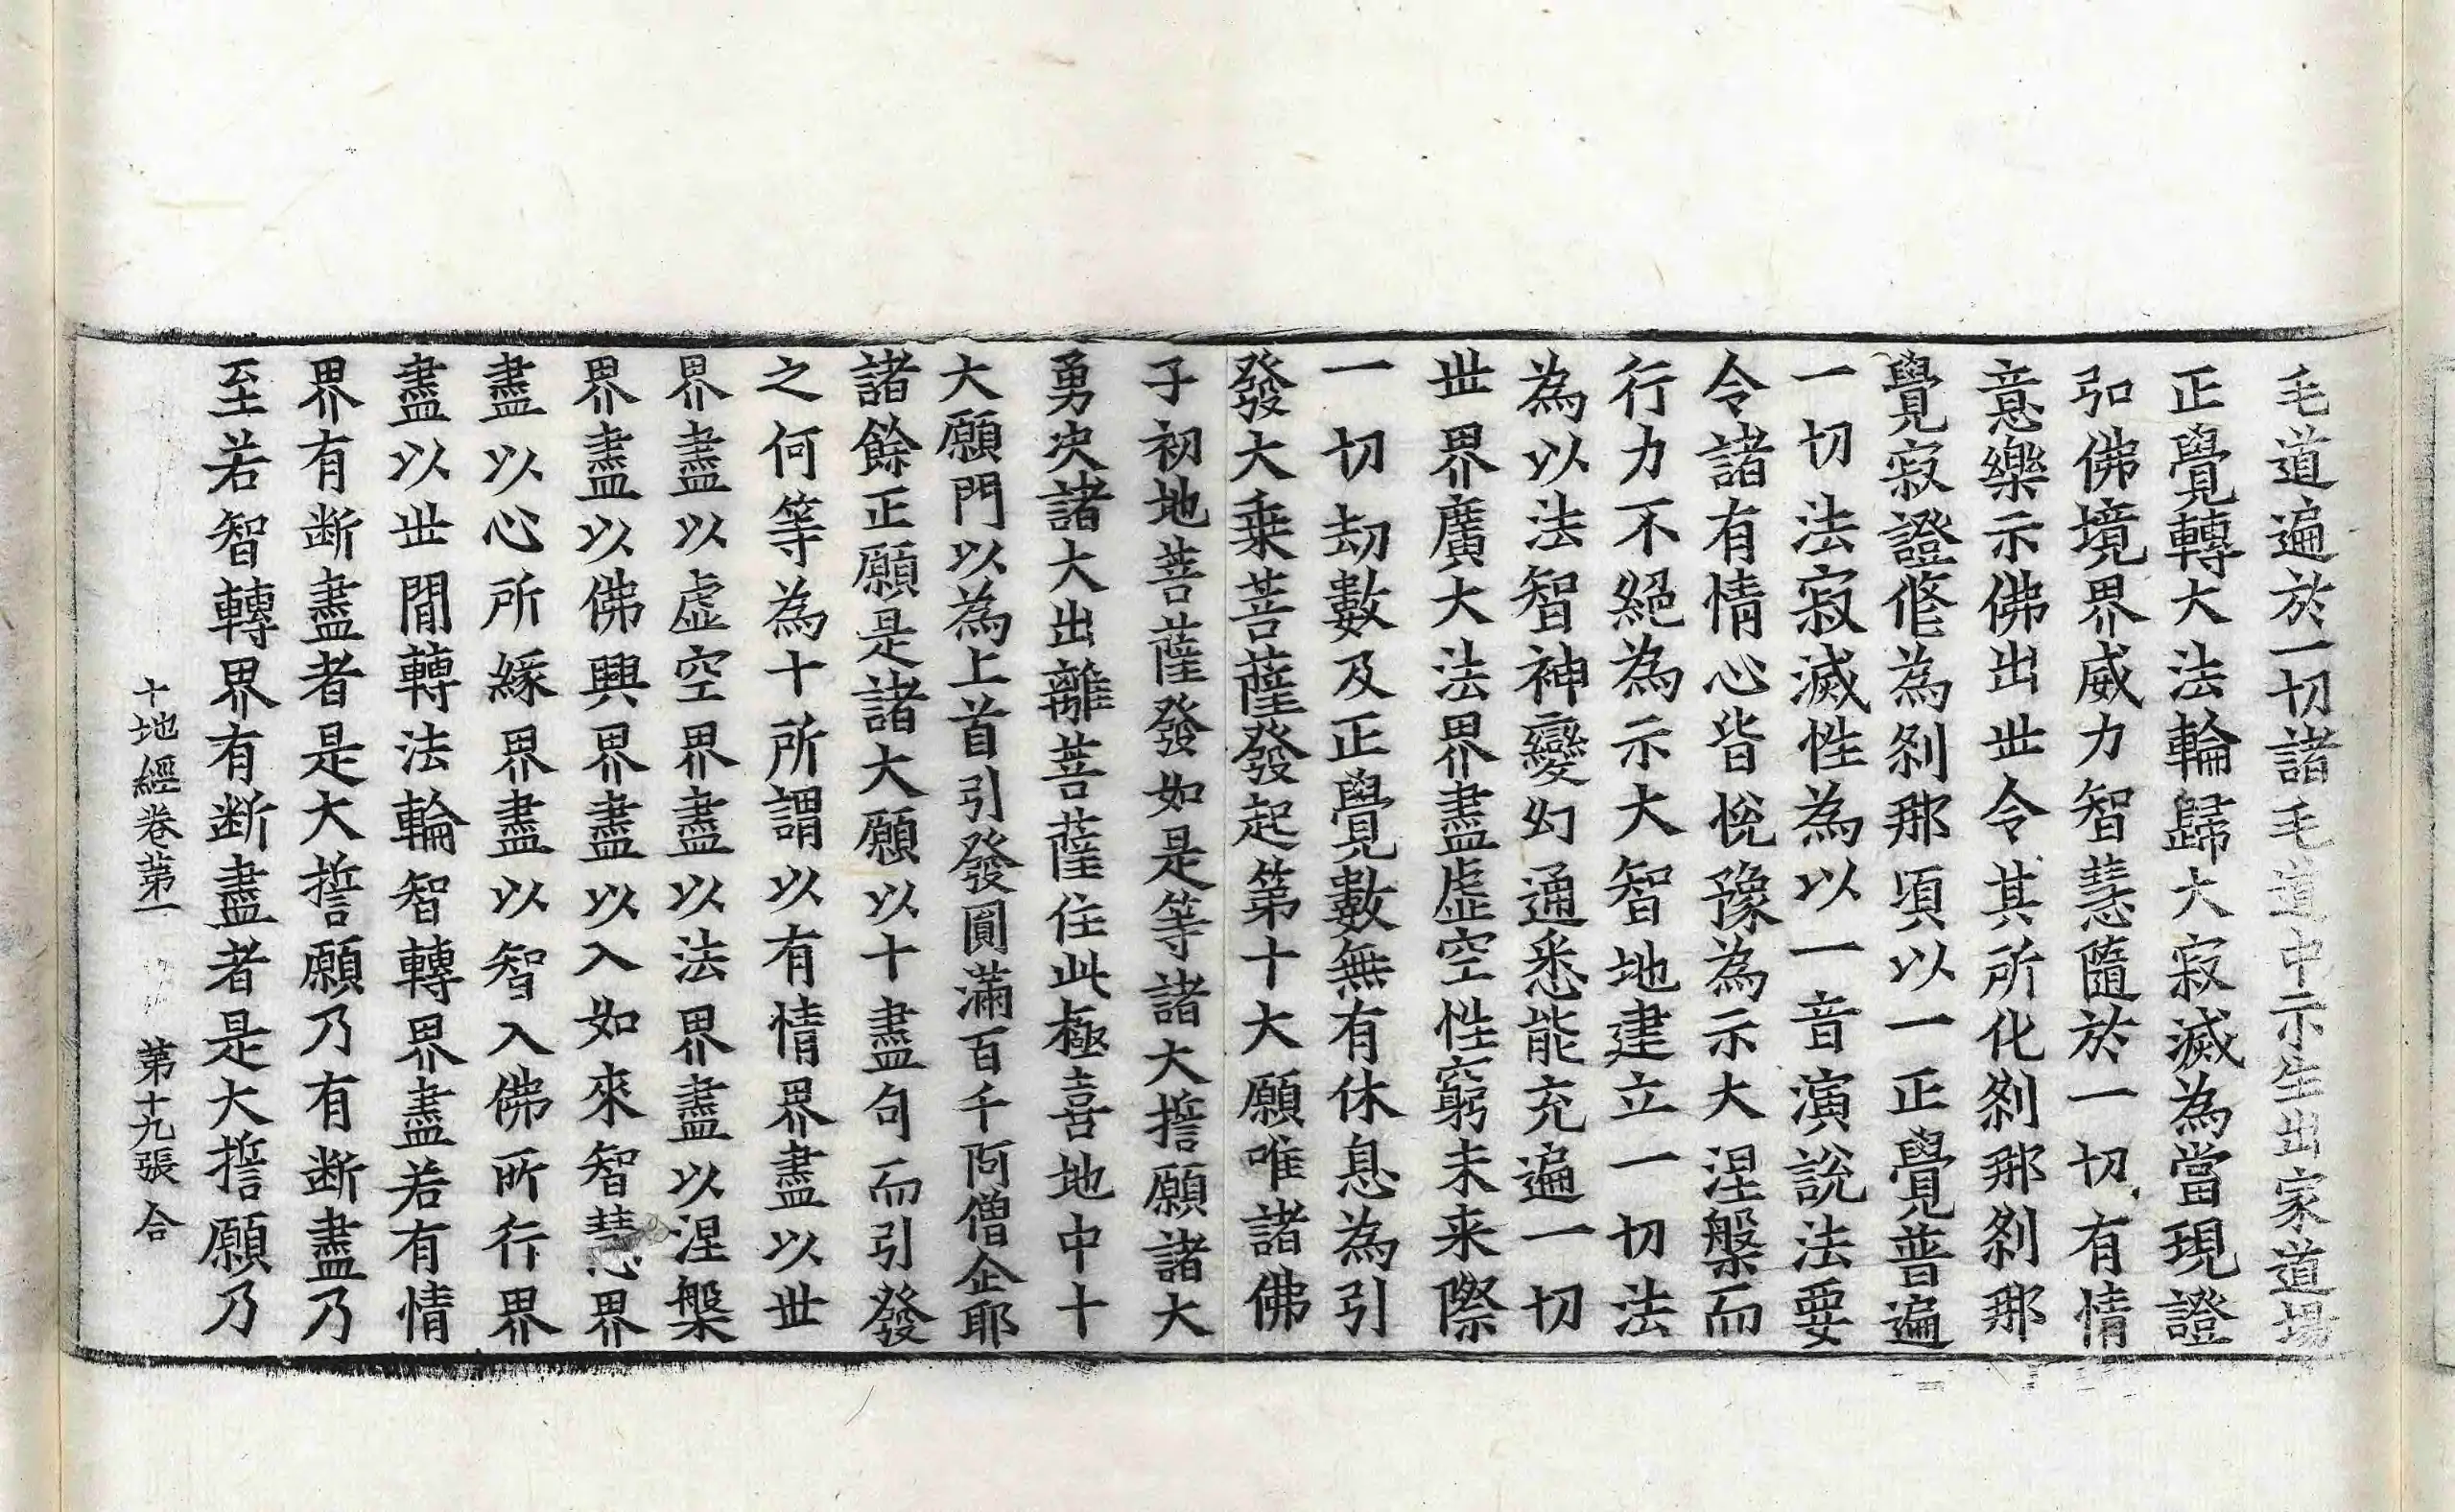 毛道遍於一切諸毛道中示生出家道場
正覺轉大法輪歸大寂滅為當現證
弘佛境界威力智慧隨於一切有情
意樂示佛出世令其所化刹那刹那
覺寂證修為刹那頃以一正覺普遍
一切法寂滅性為以一音演說法要
令諸有情心皆悅豫為示大涅槃而
行力不絕為示大智地建立一切法
為以法智神變幻通悉能充遍一切
世界廣大法界盡虛空性窮未來際
一切劫數及正覺數無有休息為引
發大乘菩薩發起第十大願唯諸佛
子初地菩薩發如是等諸大誓願諸大
勇決諸大出離菩薩住此極喜地中十
大願門以為上首引發圓滿百千阿僧企耶
諸餘正願是諸大願以十盡句而引發
之何等為十所謂以有情界盡以世
界盡以虛空界盡以法界盡以涅槃
界盡以佛興界盡以入如來智慧界
盡以心所緣界盡以智入佛所行界
盡以世間轉法輪智轉界盡若有情
界有断盡者是大誓願乃有断盡乃
至若智轉界有断盡者是大誓願乃
十地經卷第一 第十九張 合